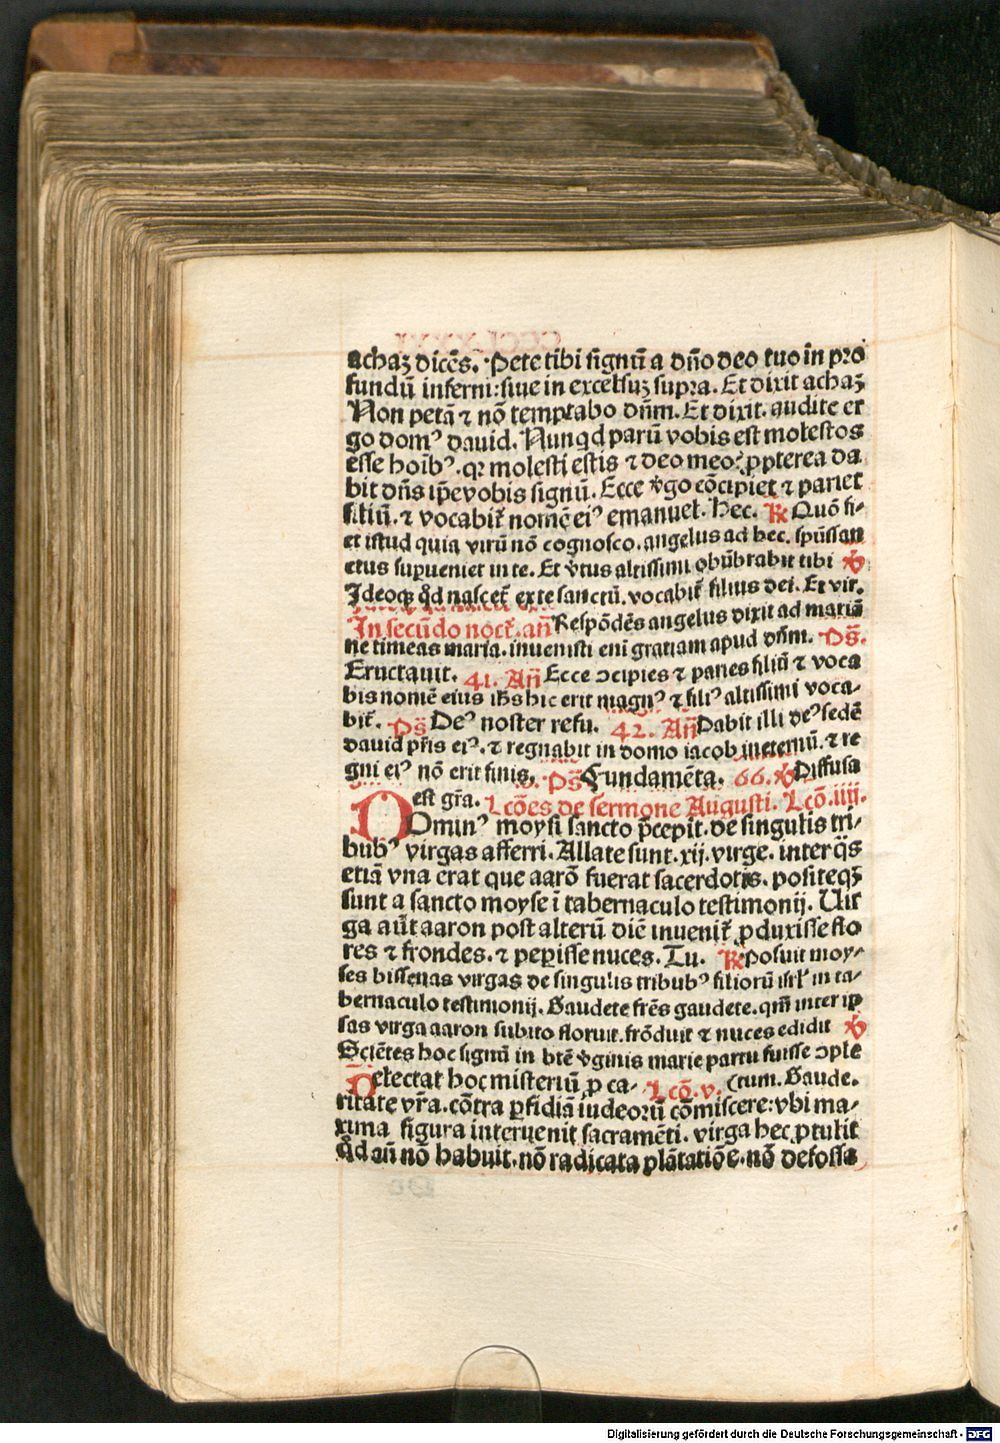 achaȝ dicēs. Pete tibi signū a dño deo tuo in pro
fundū inferni: siue in excelsuȝ supra. Et dixit achaȝ
Non petā ⁊ nō temptabo dñm. Et dixit. audite er
go domꝰ dauid. Nunqd parū vobis est molestos
esse hoībꝰ. qꝛ molesti estis ⁊ deo meo: ꝓpterea da
bit dñs ip̄e vobis signū. Ecce v̓go cōcipiet ⁊ pariet
filiū. ⁊ vocabit᷑ nomē eiꝰ emanuel. Hec. ℟ Quō fi-
et istud quia virū nō cognosco. angelus ad hec. spūssan
ctus superueniet in te. Et v̓tus altissimi obūbrabit tibi ℣
Ideoqꝫ qd̓ nascet᷑ ex te sanctū. vocabit᷑ filius dei. Et vir.
In secūdo noct᷑. añ Respōdēs angelus dixit ad mariā
ne timeas maria. inuenisti eni gratiam apud dñm. Ps̄.
Eructauit. 41. Añ Ecce ↄcipies ⁊ paries filiū ⁊ voca
bis nomē eius ihs̄ hic erit magnꝰ ⁊ filiꝰ altissimi voca-
bit᷑. Ps̄ Deꝰ noster refu. 42. Añ Dabit illi deꝰ sedē
dauid pr̄is eiꝰ. ⁊ regnabit in domo iacob in eternū. ⁊ re
gni eiꝰ nō erit finis. Ps̄ Fundamēta. 66. ℣ Diffusa
est gr̄a. Lcōes de sermone Augusti. Lcō. iiii.
DOminꝰ moysi sancto p̄cepit. de singulis tri-
bubꝰ virgas afferri. Allate sunt. xij. virge. inter q̄s
etiā vna erat que aarō fuerat sacerdotis. positeqꝫ
sunt a sancto moyse ī tabernaculo testimonij. Uir
ga aūt aaron post alterū diē inuenit᷑ ꝓduxisse flo
res ⁊ frondes. ⁊ peperisse nuces. Tu. ℟ Posuit moy-
ses bissenas virgas de singulis tribubꝰ filiorū isrl̓ in ta-
bernaculo testimonij. Gaudete fr̄es gaudete. qm̄ inter ip
sas virga aaron subito floruit. frōduit ⁊ nuces edidit ℣
Sciētes hoc signū in btē v̓ginis marie partu fuisse ↄple
Delectat hoc misteriū ꝓ ca- Lcō. v. (tum. Gaude.
ritate vr̄a. cōtra ꝑfidiā iudeorū cōmiscere: vbi ma-
xima figura interuenit sacramēti. virga hec ꝓtulit
qd̓ añ nō habuit. nō radicata plātatiōe. nō defossa
Digitalisierung gefördert durch die Deutsche Forschungsgemeinschaft - DFG